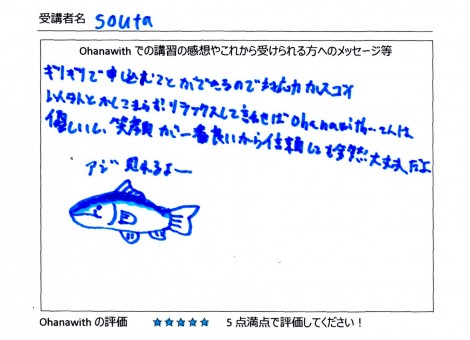 受講者名 souta
Ohanawith での講習の感想やこれから受けられる方へのメッセージ等
ギリギリで申込むことができたので対応力がスゴイ
なんとかしてもらお! リラックスして きれば Ohanawithさんは
優しいし、笑顔が一番良いから信頼しても全然大丈夫だよ
アジ 見れるよー
Ohanawith の評価 ★★★★★ 5 点満点で評価してください！